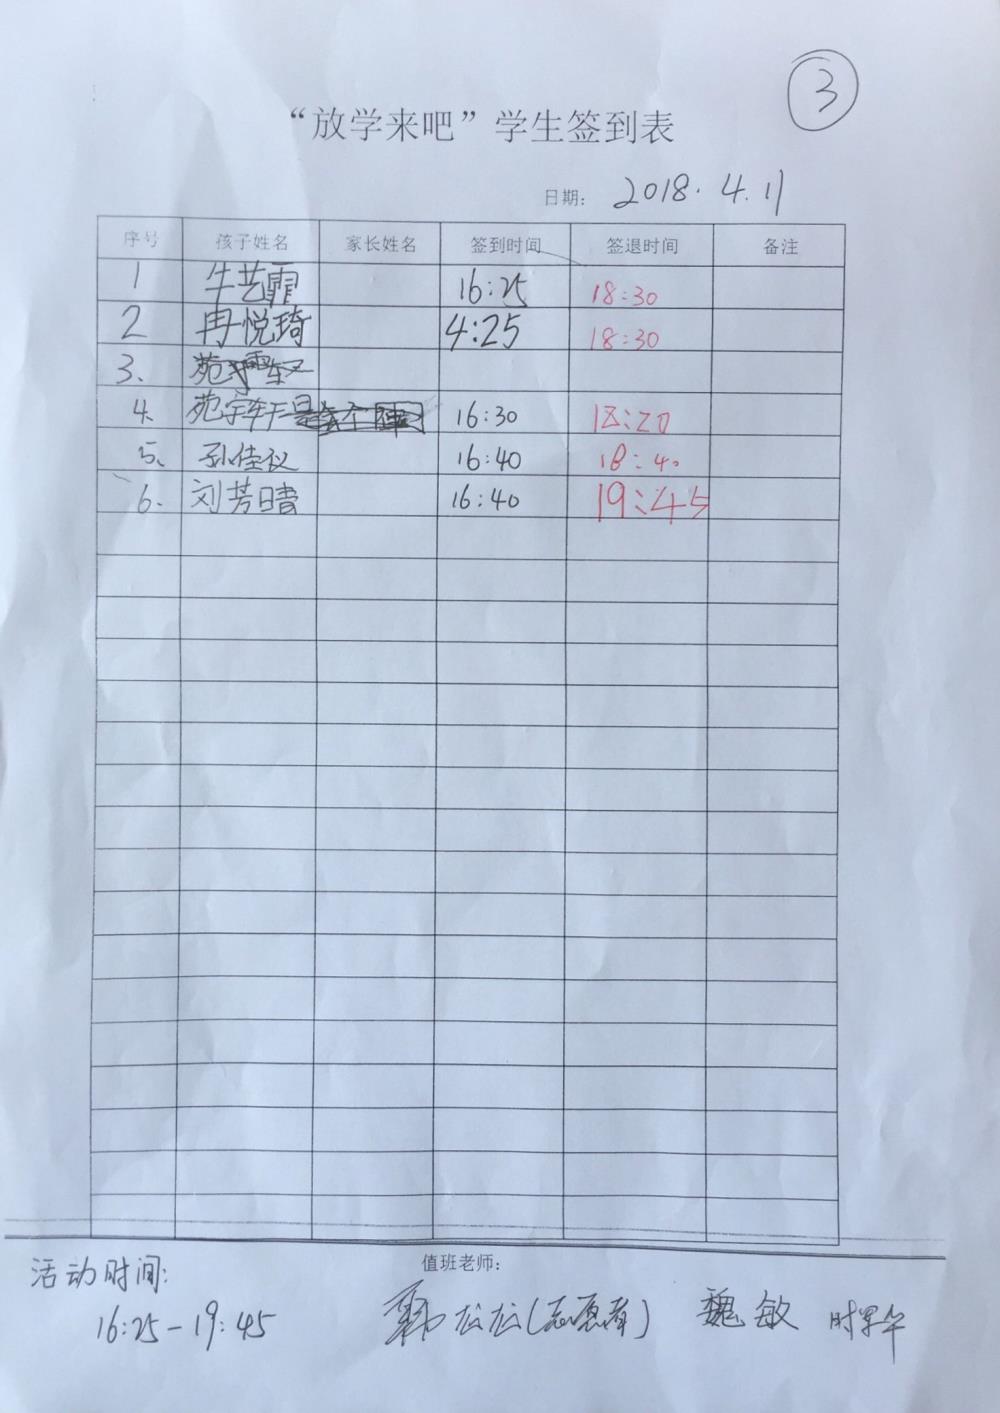 3
“放学来吧”学生签到表
日期: 2018.4.11
序号 孩子姓名 家长姓名 签到时间 签退时间 备注
1 牛艺霏 16:25 18:30
2 冉悦琦 4:25 18:30
3、
4. 苑宇轩 16:30 18:20
5、 孙佳仪 16:40 18:40
6. 刘芳晴 16:40 19:45
值班老师:
活动时间:
16:25-19:45 龙龙(志愿者) 魏敏